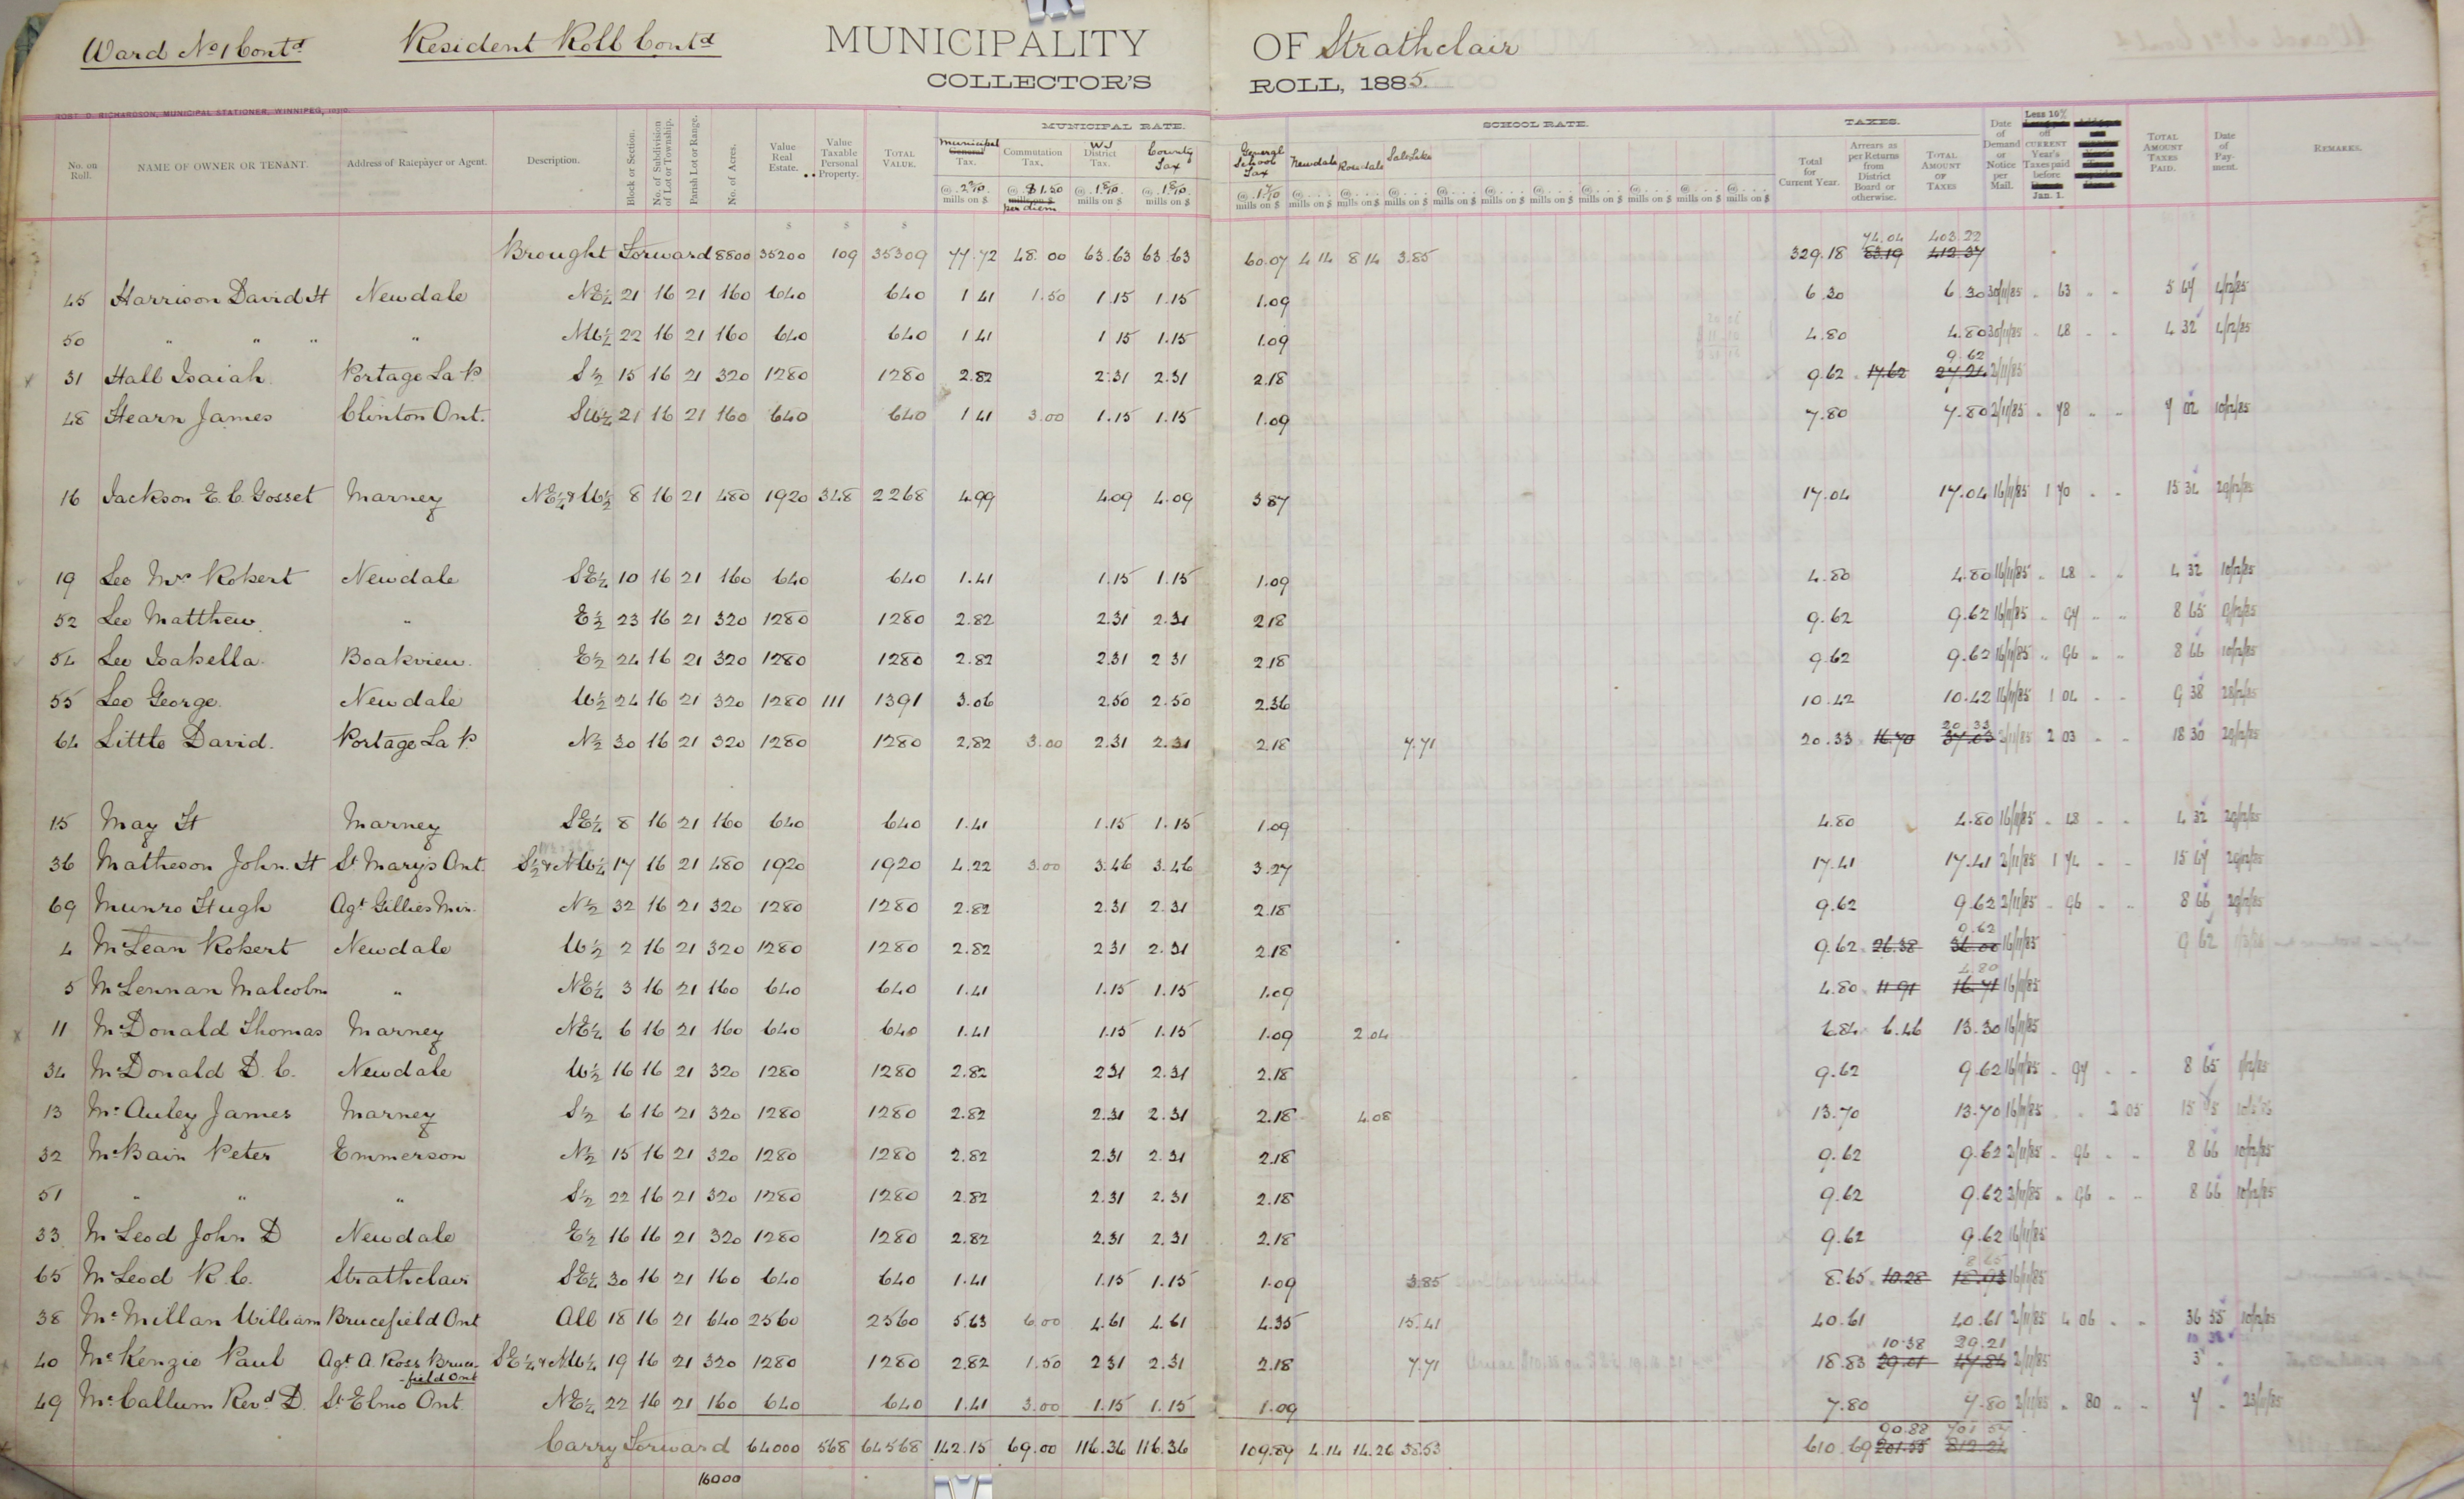 Ward No 1 Contd Resident Roll Contd MUNICIPALITY OF Strathclair
COLLECTOR'S ROLL, 1885.
ROBT. D. RICHARDSON, MUNICIPAL STATIONER, WINNIPEG,
MUNICIPAL RATE. SCHOOL RATE. TAXES.
No. on Roll. NAME OF OWNER OR TENANT. Address of Ratepayer or Agent. Description. Block or Section. No. of Subdivision of Lot or Township. Parish Lot or Range. No. of Acres. Value Real Estate. Value Taxable Personal Property. TOTAL VALUE. Municipal General Tax. Commutation Tax. WJ District Tax. County Tax General School Tax Newdale Rosedale Salt Lake Total for Current Year. Arrears as per Returns from District Board or otherwise. TOTAL AMOUNT OF TAXES Date of Demand or Notice per Mail. Less 10% off CURRENT Year's Taxes paid before Jan. 1. TOTAL AMOUNT TAXES PAID. Date of Payment. REMARKS.
@ 2 2/10 mills on $ @ $1.50 mills on $ per diem @ 1 8/10 mills on $ @ 1 8/10 mills on $ @ 1 7/10 mills on $ @ mills on $ @ mills on $ @ mills on $ @ mills on $ @ mills on $ @ mills on $ @ mills on $ @ mills on $ @ mills on $ @ mills on $
74.04 403.22
Brought Forward 8800 35200 109 35309 77.72 48.00 63.63 63.63 60.07 4 14 8 14 3.85 329.18 83.19 412.37
45 Harrison David H Newdale NE¼ 21 16 21 160 640 640 1 41 1.50 1.15 1.15 1.09 6.30 6.30 30/11/85 " 63 " " 5 67 4/12/85
50 " " " " NW¼ 22 16 21 160 640 640 1 41 1 15 1.15 1.09 4.80 4.80 30/11/85 " 48 " " 4 32 4/12/85
9.62
31 Hall Isaiah Portage La P. S½ 15 16 21 320 1280 1280 2.82 2.31 2.31 2.18 9.62 17.62 27.24 2/11/85
48 Hearn James Clinton Ont. SW¼ 21 16 21 160 640 640 1 41 3.00 1.15 1.15 1.09 7.80 7.80 2/11/85 " 78 " " 7 02 10/12/85
16 Jackson E. C. Gosset Marney NE¼ & W½ 8 16 21 480 1920 348 2268 4.99 4.09 4.09 3 87 17.04 17.04 16/11/85 1 70 " " 15 34 29/12/85
19 Lee Mrs Robert Newdale SE¼ 10 16 21 160 640 640 1.41 1.15 1.15 1.09 4.80 4.80 16/11/85 " 48 " " 4 32 10/12/85
52 Lee Matthew " E½ 23 16 21 320 1280 1280 2.82 2.31 2.31 2.18 9.62 9.62 16/11/85 " 97 " " 8 65
54 Lee Isabella. Boakview. E½ 24 16 21 320 1280 1280 2.82 2.31 2 31 2.18 9.62 9.62 16/11/85 " 96 " " 8 66 10/12/85
55 Lee George. Newdale W½ 24 16 21 320 1280 111 1391 3.06 2.50 2.50 2.36 10.42 10.42 16/11/85 1 04 " " 9 38 28/12/85
20.33
64 Little David. Portage La P. N½ 30 16 21 320 1280 1280 2.82 3.00 2.31 2.31 2.18 7.71 20.33 16.70 37.03 2/11/85 2 03 " " 18 30 29/12/85
15 May H Marney SE¼ 8 16 21 160 640 640 1.41 1.15 1.15 1.09 4.80 4.80 16/11/85 " 48 " " 4 32 29/12/85
36 Matheson John. H St Mary's Ont. S½ & NW¼ 17 16 21 480 1920 1920 4.22 3.00 3.46 3.46 3.27 17.41 17.41 2/11/85 1 74 " " 15 67 29/12/85
69 Munro Hugh Agt Gillies Min. N½ 32 16 21 320 1280 1280 2.82 2.31 2.31 2.18 9.62 9.62 2/11/85 " 96 " " 8 66 29/12/85
9.62
4 McLean Robert Newdale W½ 2 16 21 320 1280 1280 2.82 2 31 2.31 2.18 9.62 26.38 36.00 16/11/85 9 62
4.80
5 McLennan Malcolm " NE¼ 3 16 21 160 640 640 1.41 1.15 1.15 1.09 4.80 11 91 16.71 16/11/85
11 McDonald Thomas Marney NE¼ 6 16 21 160 640 640 1.41 1.15 1.15 1.09 2.04 6.84 6.46 13.30 16/11/85
34 McDonald D. C. Newdale W½ 16 16 21 320 1280 1280 2.82 2 31 2.31 2.18 9.62 9.62 16/11/85 " 97 " " 8 65 1/12/85
13 McAuley James Marney S½ 6 16 21 320 1280 1280 2.82 2.31 2.31 2.18 4.08 13.70 13.70 16/11/85 " " 2 05 15 75
32 McBain Peter Emmerson N½ 15 16 21 320 1280 1280 2.82 2.31 2.31 2.18 9.62 9.62 2/11/85 " 96 " " 8 66 10/12/85
51 " " " S½ 22 16 21 320 1280 1280 2.82 2.31 2.31 2.18 9.62 9.62 2/11/85 " 96 " " 8 66 10/12/85
33 McLeod John D Newdale E½ 16 16 21 320 1280 1280 2.82 2.31 2.31 2.18 9.62 9.62 16/11/85
8 65
65 McLeod R. C. Strathclair SE¼ 30 16 21 160 640 640 1.41 1.15 1.15 1.09 3.85 8.65 10.28 18.93 16/11/85
38 McMillan William Brucefield Ont All 18 16 21 640 2560 2560 5.63 6.00 4.61 4.61 4.35 15.41 40.61 40.61 2/11/85 4 06 " " 36 55 10/12/85
10.38 29.21 10 38
40 McKenzie Paul Agt A. Ross Bruce- SE¼ & NW¼ 19 16 21 320 1280 1280 2.82 1.50 2 31 2.31 2.18 7.71 18.83 29.01 47.84 2/11/85 3 "
-field Ont
49 McCallum Revd D. St Elmo Ont. NE¼ 22 16 21 160 640 640 1.41 3.00 1.15 1.15 1.09 7.80 7.80 2/11/85 " 80 " " 7 " 23/11/85
90.88 701 57
Carry Forward 64000 568 64568 142.15 69.00 116.36 116.36 109.89 4.14 14.26 38.53 610.69 201.55 812.24
16000